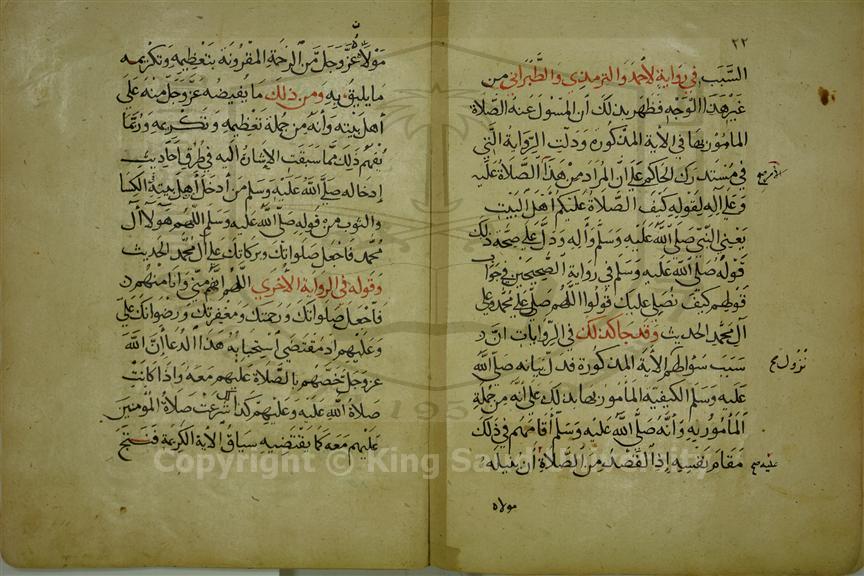 ٢٢
السبب في رواية لأحمد والترمذي والطبراني من
غير هذا الوجه فظهر بذلك أن المسول عنه الصلاة
المأمور بها في الآية المذكورة ودلت الرواية التي
في مستدرك الحاكم على ان المراد من هذا الصلاة عليه
وعلى آله لقوله كيف الصلاة عليكم أهل البيت
يعني النبي صلى الله عليه وسلم وآله ودل على صحة ذلك
قوله صلى الله عليه وسلم في رواية الصحيحين في جواب
قولهم كيف نصلي عليك قولوا اللهم صل على محمد وعلى
آل محمد الحديث وقد جا كذلك في الروايات ان
نزول صح
سبب سؤالهم الآية المذكورة فدل بيانه صلى الله
عليه وسلم الكيفية المأمور بها بذلك على أنه من جملة
المأمور به وأنه صلى الله عليه وسلم أقامهم في ذلك
مقام نفسه إذ القصد من الصلاة أن ينيله
عليه صح
مولاه
مولاه عز وجل من الرحمة المقرونة بتعظيمه وتكريمه
ما يليق به ومن ذلك ما يفيضه عز وجل منه على
أهل بيته وأنه من جملة تعظيمه وتكريمه وربما
يفهم ذلك مما سبقت الإشارة اليه في طرق أحاديث
إدخاله صلى الله عليه وسلم من أدخل أهل بيته الكسا
والثوب من قوله صلى الله عليه وسلم اللهم هؤلاء آل
محمد فاجعل صلواتك وبركاتك على آل محمد الحديث
وقوله في الرواية الأخرى اللهم انهم مني وأنا منهم
فاجعل صلواتك ورحمتك ومغفرتك ورضوانك علي
وعليهم اذ مقتضى استجابة هذا الدعا أن الله
عز وجل خصهم بالصلاة عليهم معه واذا كانت
صلاة الله عليه وعليهم كذا شرعت صلاة المؤمنين
عليهم معه كما يقتضيه سياق الآية الكريمة
Copyright © King Saud University
1957